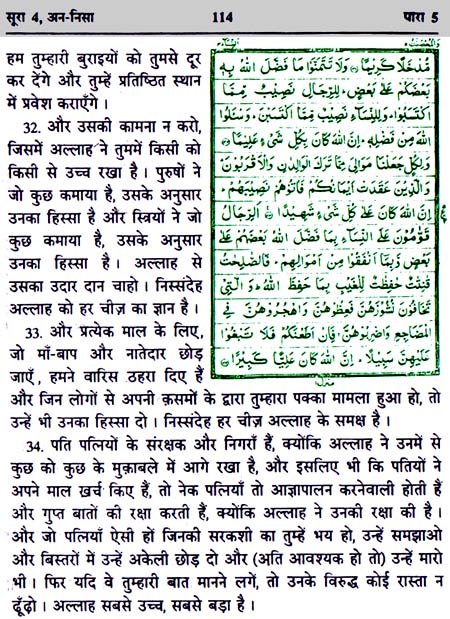 सूरा 4, अन-निसा
114
पारा 5
हम तुम्हारी बुराइयों को तुमसे दूर
कर देंगे और तुम्हें प्रतिष्ठित स्थान
में प्रवेश कराएँगे ।
32. और उसकी कामना न करो,
जिसमें अल्लाह ने तुममें किसी को
किसी से उच्च रखा है । पुरुषों ने
जो कुछ कमाया है, उसके अनुसार
उनका हिस्सा है और स्त्रियों ने जो
कुछ कमाया है, उसके अनुसार
उनका हिस्सा है । अल्लाह से
उसका उदार दान चाहो । निस्संदेह
अल्लाह को हर चीज़ का ज्ञान है ।
33. और प्रत्येक माल के लिए,
जो माँ-बाप और नातेदार छोड़
जाएँ, हमने वारिस ठहरा दिए हैं
और जिन लोगों से अपनी क़समों के द्वारा तुम्हारा पक्का मामला हुआ हो, तो
उन्हें भी उनका हिस्सा दो । निस्संदेह हर चीज़ अल्लाह के समक्ष है ।
34. पति पत्नियों के संरक्षक और निगराँ हैं, क्योंकि अल्लाह ने उनमें से
कुछ को कुछ के मुक़ाबले में आगे रखा है, और इसलिए भी कि पतियों ने
अपने माल ख़र्च किए हैं, तो नेक पत्नियाँ तो आज्ञापालन करनेवाली होती हैं
और गुप्त बातों की रक्षा करती हैं, क्योंकि अल्लाह ने उनकी रक्षा की है ।
और जो पत्नियाँ ऐसी हों जिनकी सरकशी का तुम्हें भय हो, उन्हें समझाओ
और बिस्तरों में उन्हें अकेली छोड़ दो और (अति आवश्यक हो तो) उन्हें मारो
भी । फिर यदि वे तुम्हारी बात मानने लगें, तो उनके विरुद्ध कोई रास्ता न
ढूँढ़ो । अल्लाह सबसे उच्च, सबसे बड़ा है ।
مُّدْخَلًا كَرِيْمًا وَلَا تَتَمَنَّوْا مَا فَضَّلَ اللّٰهُ بِهٖ
بَعْضَكُمْ عَلٰى بَعْضٍ لِلرِّجَالِ نَصِيْبٌ مِّمَّا
اكْتَسَبُوْا وَلِلنِّسَآءِ نَصِيْبٌ مِّمَّا اكْتَسَبْنَ وَسْـَٔلُوا
اللّٰهَ مِنْ فَضْلِهٖ اِنَّ اللّٰهَ كَانَ بِكُلِّ شَىْءٍ عَلِيْمًا
وَلِكُلٍّ جَعَلْنَا مَوَالِىَ مِمَّا تَرَكَ الْوَالِدٰنِ وَالْاَقْرَبُوْنَ
وَالَّذِيْنَ عَقَدَتْ اَيْمَانُكُمْ فَاٰتُوْهُمْ نَصِيْبَهُمْ
اِنَّ اللّٰهَ كَانَ عَلٰى كُلِّ شَىْءٍ شَهِيْدًا اَلرِّجَالُ
قَوّٰمُوْنَ عَلَى النِّسَآءِ بِمَا فَضَّلَ اللّٰهُ بَعْضَهُمْ عَلٰى
بَعْضٍ وَّبِمَآ اَنْفَقُوْا مِنْ اَمْوَالِهِمْ فَالصّٰلِحٰتُ
قٰنِتٰتٌ حٰفِظٰتٌ لِّلْغَيْبِ بِمَا حَفِظَ اللّٰهُ وَالّٰتِىْ
تَخَافُوْنَ نُشُوْزَهُنَّ فَعِظُوْهُنَّ وَاهْجُرُوْهُنَّ فِى
الْمَضَاجِعِ وَاضْرِبُوْهُنَّ فَاِنْ اَطَعْنَكُمْ فَلَا تَبْغُوْا
عَلَيْهِنَّ سَبِيْلًا اِنَّ اللّٰهَ كَانَ عَلِيًّا كَبِيْرًا